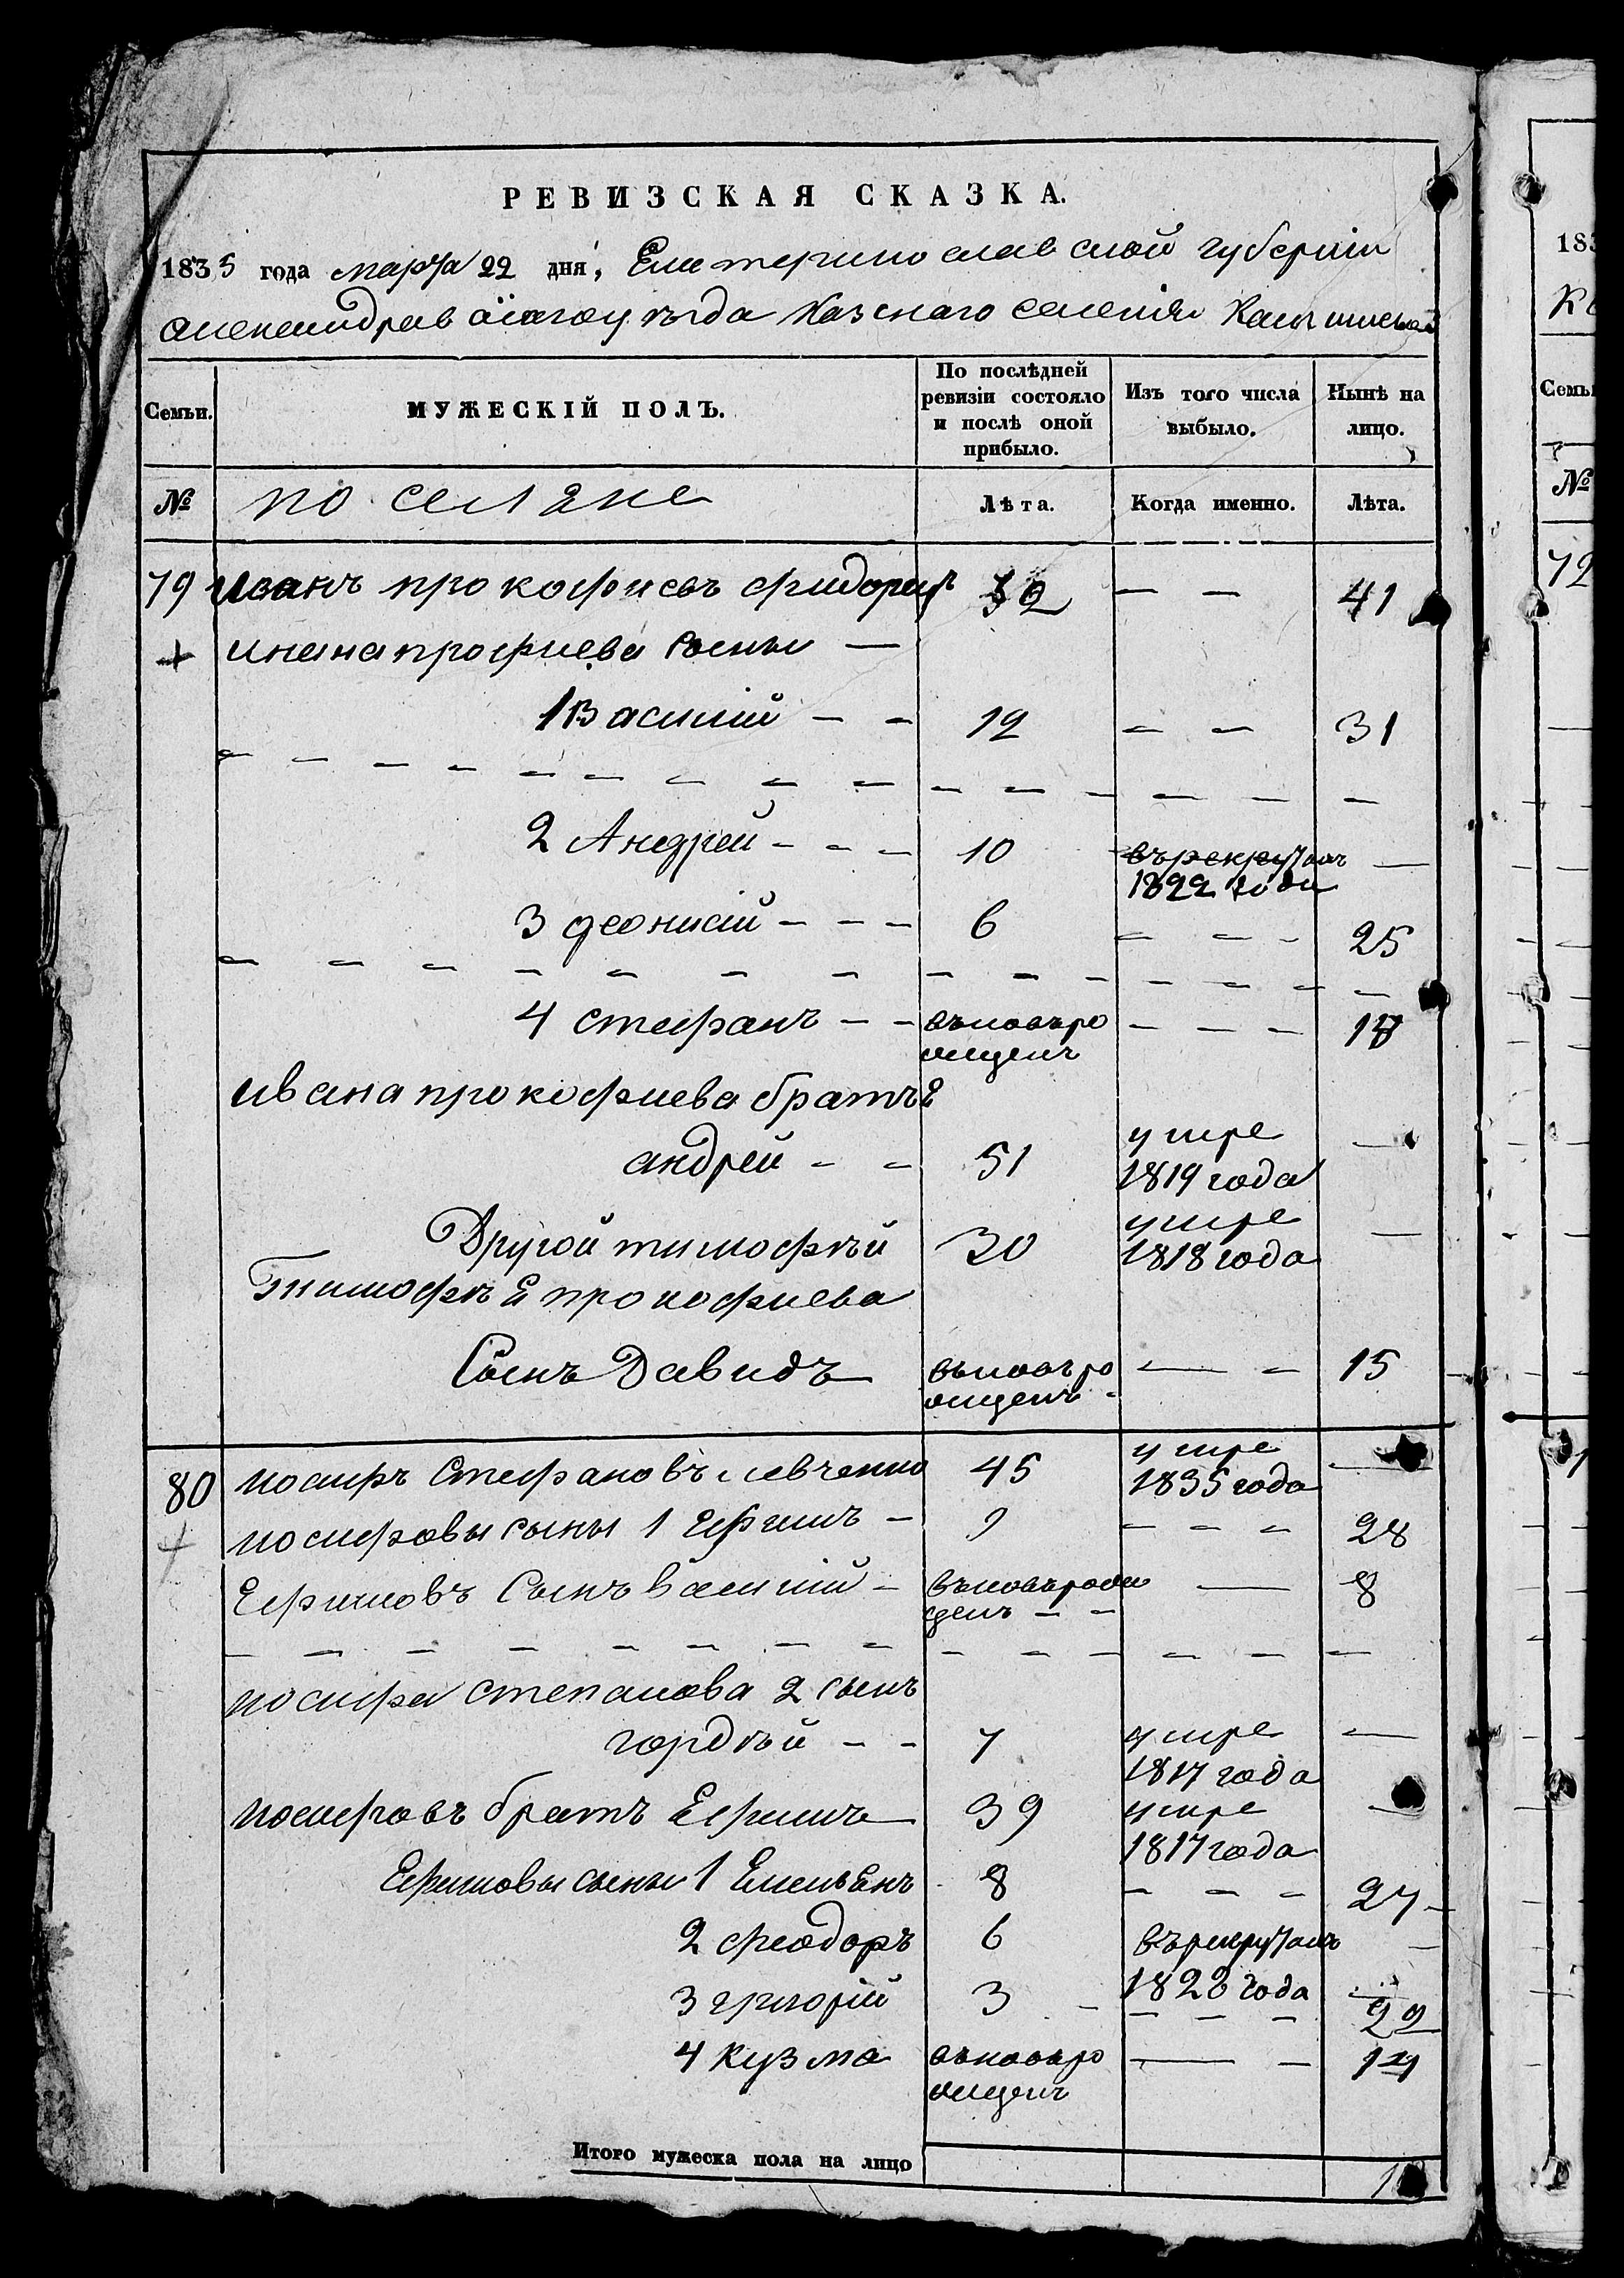 РЕВИЗСКАЯ СКАЗКА.
1835 года марта 22 дня, Екатеринославской губернии
Александравскагоуъзда Казенаго селения
Семьи. МУЖЕСКІЙ ПОЛЪ. По послѣдней ревизіи состояло и послѣ оной прибыло. Изъ того числа выбыло. Нынѣ на лицо.
№ поселяне Лѣта. Когда именно. Лѣта.
79 Иванъ прокофиевъ — — 41
сыны —
1 Василий — — 12 — — 31
2 Андрей — — — 10 въ рекрутахъ —
1822 года
3 деонисий — — — 6 — — — 25
4 стефанъ — — вьновъро — — —
жденъ
ивана прокофиева братъЯ
андрей — — 51 умре —
1819 года
Другой тимофѣй 30 умре —
1818 года
ТимофѣЯ прокофиева
Сынъ Давидъ вьновъро — — 15
жденъ
80 иосифъ Стефановъ левченко 45 умре —
1835 года
иосифовы сыны 1 Ефимъ — 9 — — — 28
Ефимовъ Сынъ василий — вьновърож — 8
денъ — —
иосифа степанова 2 сынъ
гордѣй — — 7 умре —
1817 года
иосифовъ братъ Ефимъ 39 умре —
1817 года
Ефимовы сыны 1 Емельянъ 8 — — — 27
2 феодоръ 6 върекрутахъ —
1828 года
3 григорій 3 — — — 22
4 Кузма вьновъро — —
жденъ
Итого мужеска пола на лицо
183
Семьи
№
72